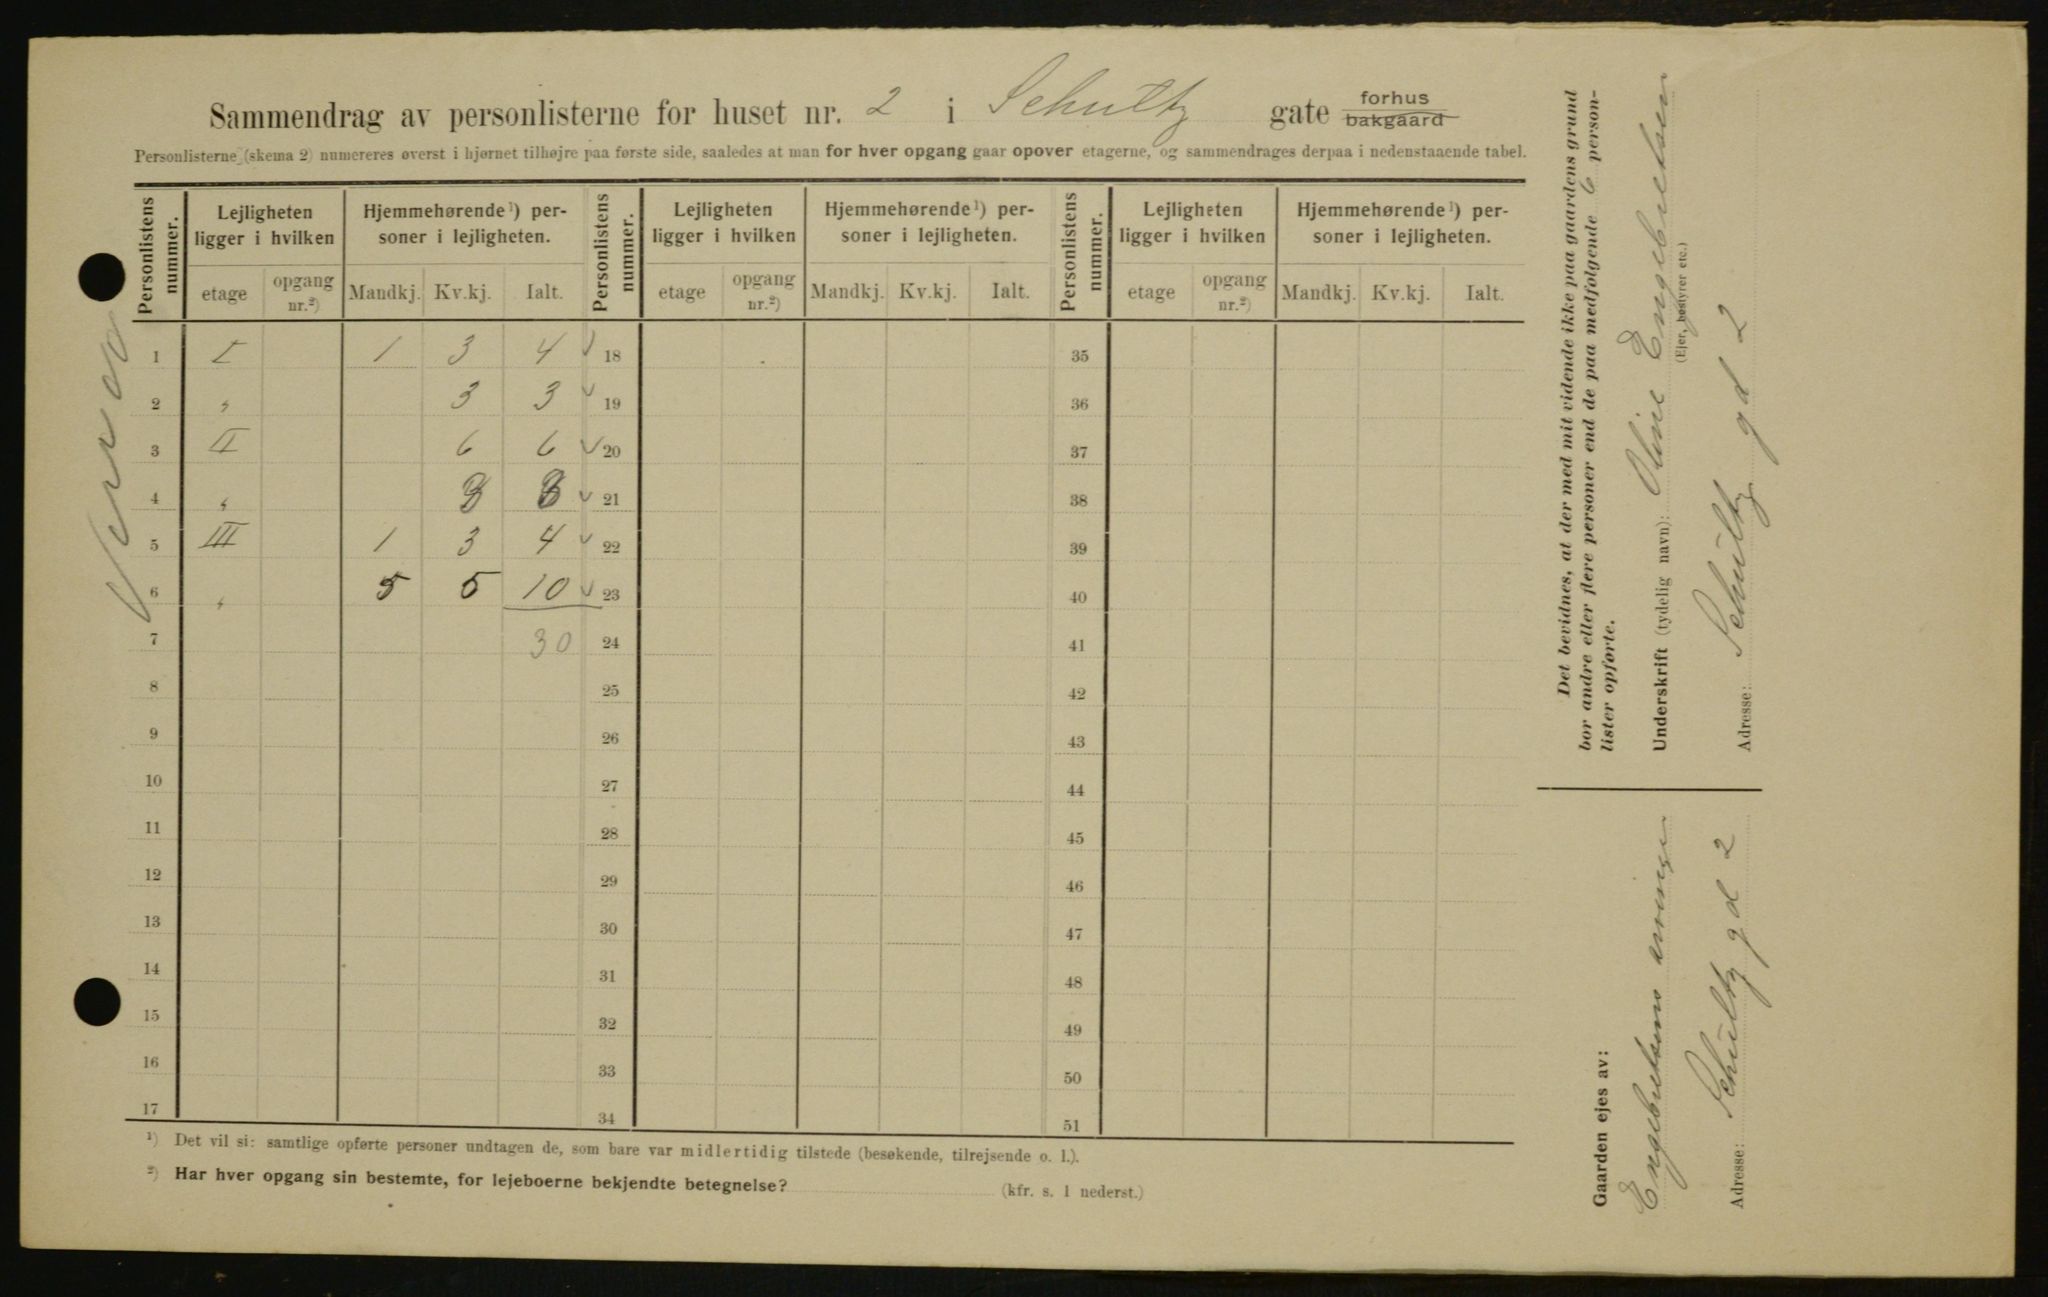 Sammendrag av personlisterne for huset nr. 2 i Schultz gate forhus bakgaard
Personlisterne (skema 2) numereres øverst i hjørnet tilhøjre paa første side, saaledes at man for hver opgang gaar opover etagerne, og sammendrages derpaa i nedenstaaende tabel.
Personlistens nummer. Lejligheten ligger i hvilken Hjemmehørende ¹) personer i lejligheten. Personlistens nummer. Lejligheten ligger i hvilken Hjemmehørende ¹) personer i lejligheten. Personlistens nummer. Lejligheten ligger i hvilken Hjemmehørende ¹) personer i lejligheten.
etage opgang nr.²) Mandkj. Kv.kj. Ialt. etage opgang nr.²) Mandkj. Kv.kj. Ialt. etage opgang nr.²) Mandkj. Kv.kj. Ialt.
1 I 1 3 4 18 35
2 " 3 3 19 36
3 II 6 6 20 37
4 " 3 3 21 38
5 III 1 3 4 22 39
6 " 5 5 10 23 40
7 30 24 41
8 25 42
9 26 43
10 27 44
11 28 45
12 29 46
13 30 47
14 31 48
15 32 49
16 33 50
17 34 51
¹) Det vil si: samtlige opførte personer undtagen de, som bare var midlertidig tilstede (besøkende, tilrejsende o. l.).
²) Har hver opgang sin bestemte, for lejeboerne bekjendte betegnelse? (kfr. s. 1 nederst.)
Det bevidnes, at der med mit vidende ikke paa gaardens grund
bor andre eller flere personer end de paa medfølgende 6 person-
lister opførte.
Underskrift (tydelig navn): Oline Engebretsen
(Ejer, bestyrer etc.)
Adresse: Schultz gd 2
Gaarden ejes av:
Engebretsens arvinger
Adresse: Schultz gd 2